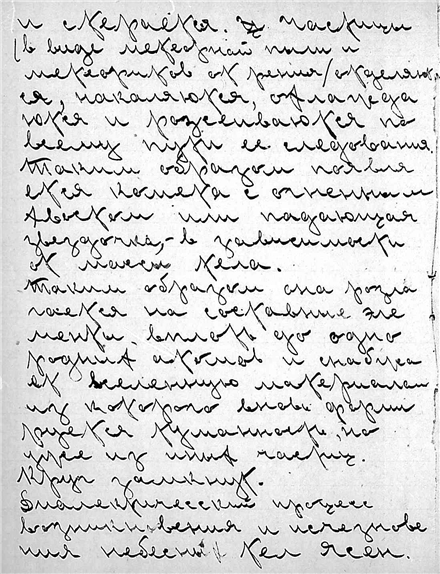 и стерается. Частицы
(в виде метеорной пыли и
метеоритов от трения) отделяют
ся, накаляются, охлажда
ются и розсеиваются по
всему пути ее следования.
Таким образом появля
ется комета с огненным
хвостом или падающая
звездочка,- в зависимости
от массы тела.
Таким образом она розла
гается на составные эле
менты, вплоть до одно
родных атомов и снабжа
ет вселенную материалом
из которого вновь форми
руется туманность, но
уже из иных частиц.
Круг замкнут.
Диалектический процесс
возникновения и исчезнове
ния небесных тел ясен.